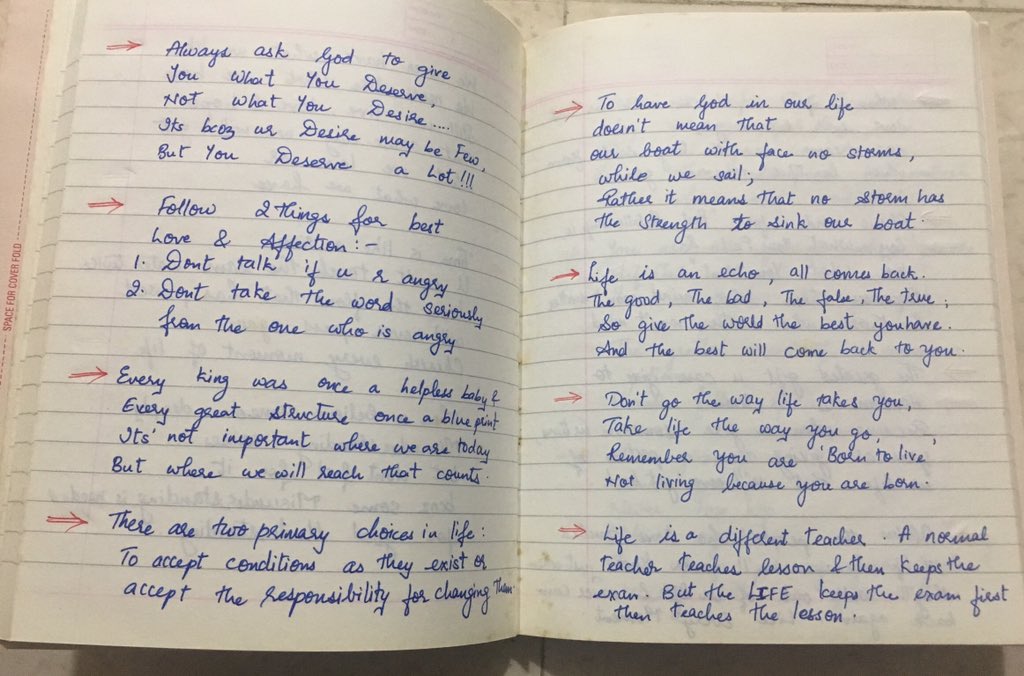 SPACE FOR COVER FOLD
Always ask God to give
You what You Deserve,
Not what You Desire....
Its bcoz ur Desire may be Few,
But You Deserve a Lot!!!
Follow 2 things for best
Love & Affection:-
1. Dont talk if u r angry
2. Dont take the word seriously
from the one who is angry
Every king was once a helpless baby &
Every great structure once a blue print
Its' not important where we are today
But where we will reach that counts.
There are two primary choices in life:
To accept conditions as they exist or
accept the responsibility for changing them.
To have God in our life
doesn't mean that
our boat with face no storms,
while we sail;
Rather it means that no storm has
the strength to sink our boat.
Life is an echo, all comes back.
The good, The bad, The false, The true;
So give the world the best you have.
And the best will come back to you.
Don't go the way life takes you,
Take life the way you go,
Remember you are 'Born to live'
Not living because you are born.
Life is a different teacher. A normal
teacher teaches lesson & then keeps the
exam. But the LIFE keeps the exam first
then teaches the lesson.